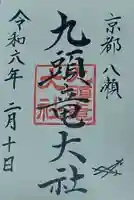 京都 八瀬
九頭竜大社
令和六年 二月十日